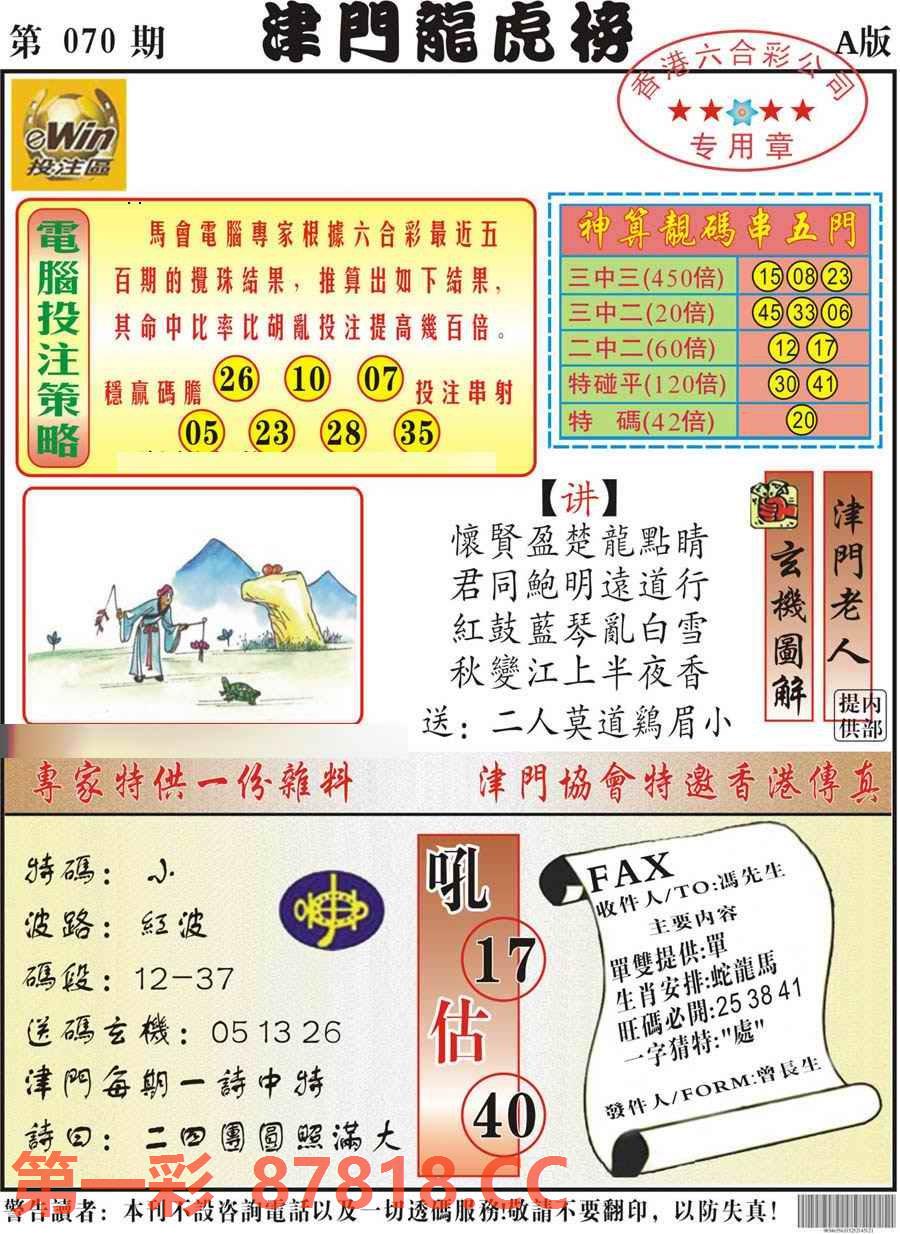 第 070 期
津門龍虎榜
A版
香港六合彩公司
专用章
eWin
投注區
電腦投注策略
馬會電腦專家根據六合彩最近五
百期的攪珠結果，推算出如下結果，
其命中比率比胡亂投注提高幾百倍。
穩贏碼膽 26 10 07 投注串射
05 23 28 35
神算靚碼串五門
三中三(450倍) 15 08 23
三中二(20倍) 45 33 06
二中二(60倍) 12 17
特碰平(120倍) 30 41
特 碼(42倍) 20
【讲】
懷賢盈楚龍點睛
君同鮑明遠道行
紅鼓藍琴亂白雪
秋變江上半夜香
送：二人莫道鷄眉小
玄機圖解
津門老人
内部提供
專家特供一份雜料
津門協會特邀香港傳真
特碼：小
波路：紅波
碼段：12-37
送碼玄機：05 13 26
津門每期一詩中特
詩曰：二四團圓照滿大
吼
17
估
40
FAX
收件人/TO:馮先生
主要内容
單雙提供:單
生肖安排:蛇龍馬
旺碼必開:25 38 41
一字猜特:"處"
發件人/FORM:曾長生
第一彩 87818.CC
警告讀者：本刊不設咨詢電話以及一切透碼服務!敬請不要翻印，以防失真！